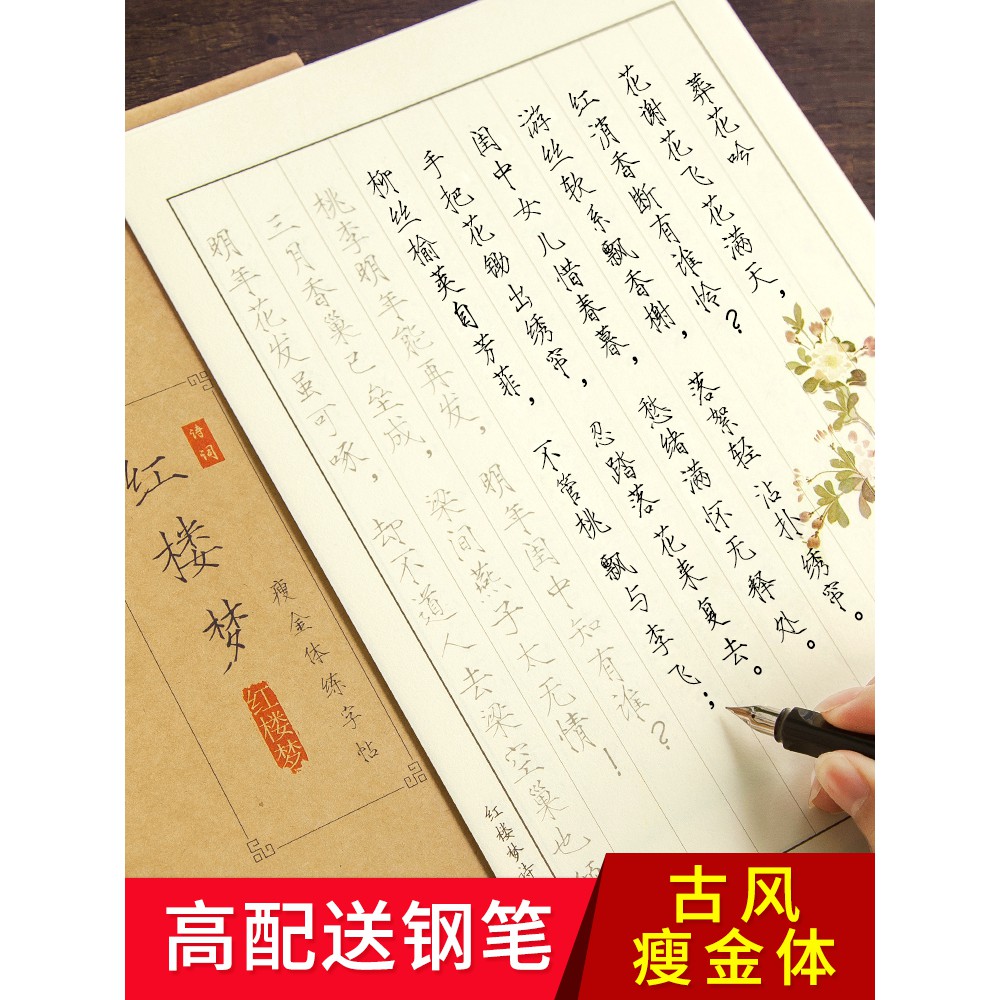 葬花吟
花谢花飞花满天，
红消香断有谁怜？
游丝软系飘香榭， 落絮轻沾扑绣帘。
闺中女儿惜春暮， 愁绪满怀无释处。
手把花锄出绣帘， 忍踏落花来复去。
柳丝榆荚自芳菲， 不管桃飘与李飞；
桃李明年能再发， 明年闺中知有谁？
三月香巢已垒成， 梁间燕子太无情！
明年花发虽可啄， 却不道人去梁空巢也
红楼梦诗
诗词
红楼梦
瘦金体练字帖
红楼梦
高配送钢笔
古风
瘦金体